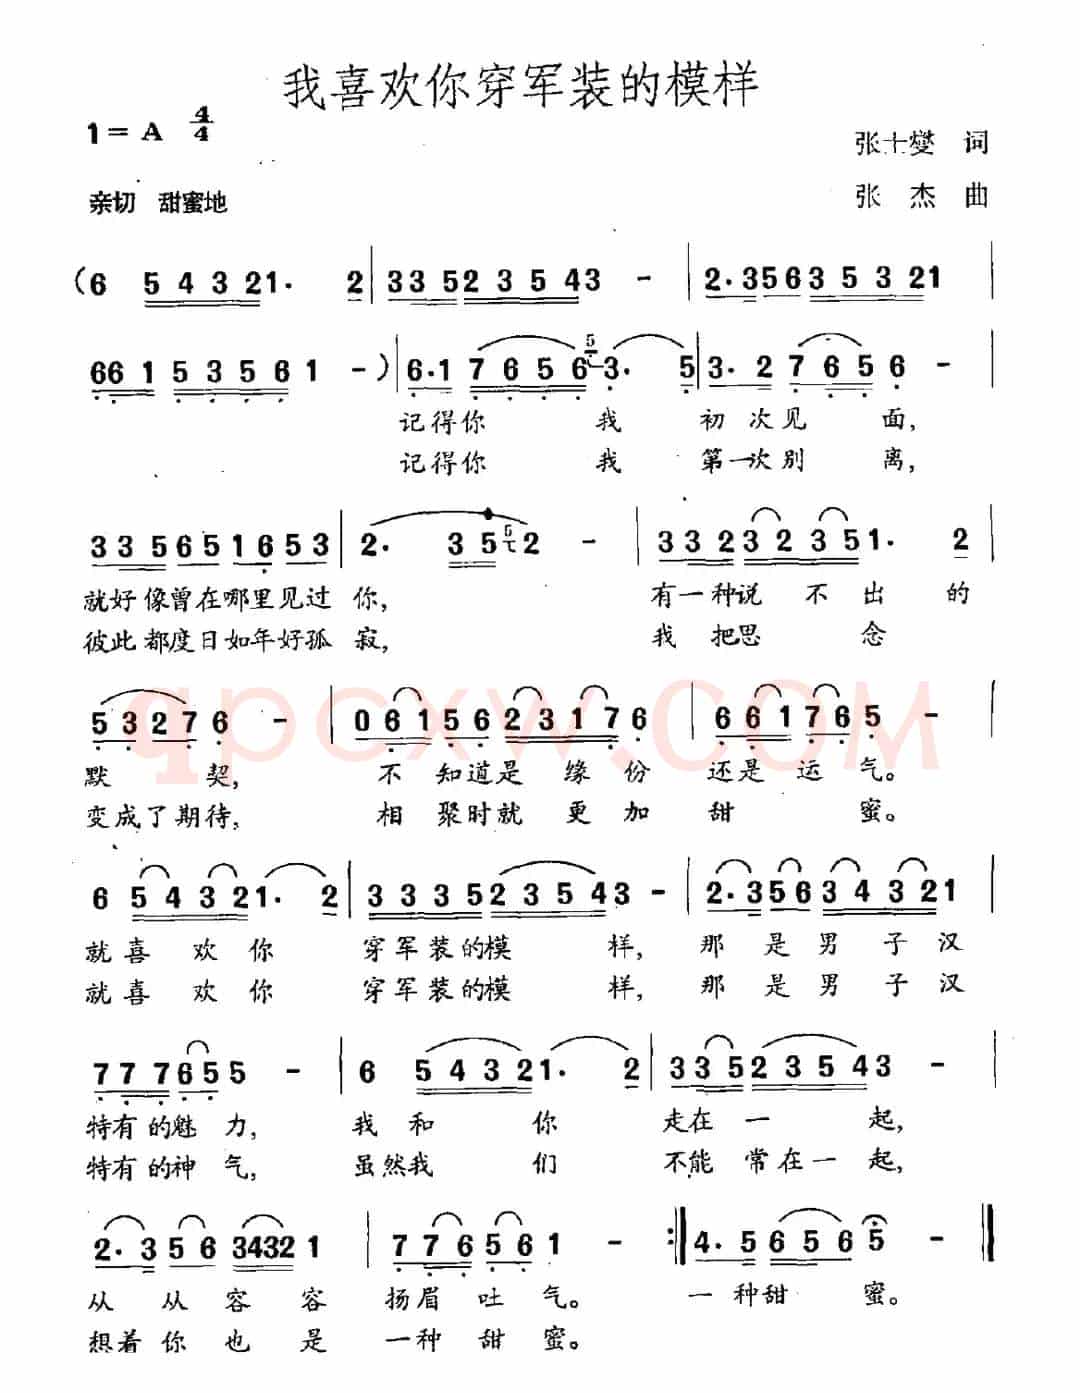 我喜欢你穿军装的模样
1=A 4/4
张士燮 词
亲切 甜蜜地
张 杰 曲
(6 5 4 3 21· 2 | 335235 43 - | 2·356353 21 |
661 53561 - ) | 6·1 7656 5 3· 5 | 3·2 7656 -
记得你 我 初 次见 面,
记得你 我 第一次别 离,
335651653 | 2· 35 5 2 - | 332323 51· 2
就好像曾在哪里见过 你, 有一种说 不 出 的
彼此都度日如年好孤 寂, 我 把思 念
53276 - | 061562317 6 | 661765 -
qpcxw.com
默 契, 不 知道是 缘 份 还是 运 气。
变成了期待, 相 聚时就 更 加 甜 蜜。
6 5 4 3 21· 2 | 3335235 43 - | 2·35634321
就喜 欢 你 穿军装的模 样, 那 是男 子 汉
就喜 欢 你 穿军装的模 样, 那 是男 子 汉
777655 - | 6 5 4 3 21· 2 | 335235 43 -
特有的魅 力, 我 和 你 走在 一 起,
特有的神 气, 虽然我 们 不能 常在一 起,
2·35634321 | 776561 - :|| 4·56565 - ||
从 从 容 容 扬眉 吐 气。 一 种甜 蜜。
想着你 也 是 一 种 甜 蜜。